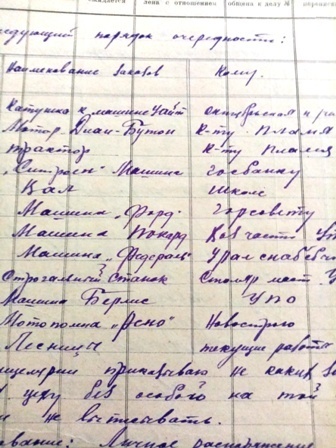 лена с отношением обшива к делу №
едующий порядок очередности:
Наименование заказов Кому.
Катушка к машине Уайт октябрьской
Мотор Диан-Бутон К-ту Пламя
трактор К-ту Пламя
„Ситроен" Машина Госбанку
Вал школе
Машина „Форд" Горсовету
Машина Покард Кав части
Машина „Федераль" Уралснаб
Строгальный Станок Столяр маст.
Машина Берлие УПО
Мотопомпа „Рено" Новострою
Лесницы текущие работы
нцелярии приказываю не каких
цеху без особого на той
и не выписывать.
Личное распоряжение